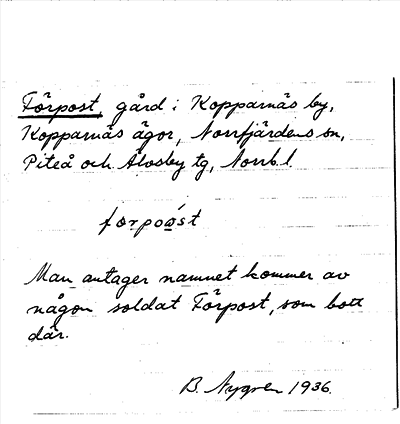 Förpost, gård i Kopparnäs by,
Kopparnäs ägor, Norrfjärdens sn,
Piteå och Älvsby tg, Norrb. l.
førpoo´st
Man antager namnet kommer av
någon soldat Förpost, som bott
där.
B. Nygren 1936.